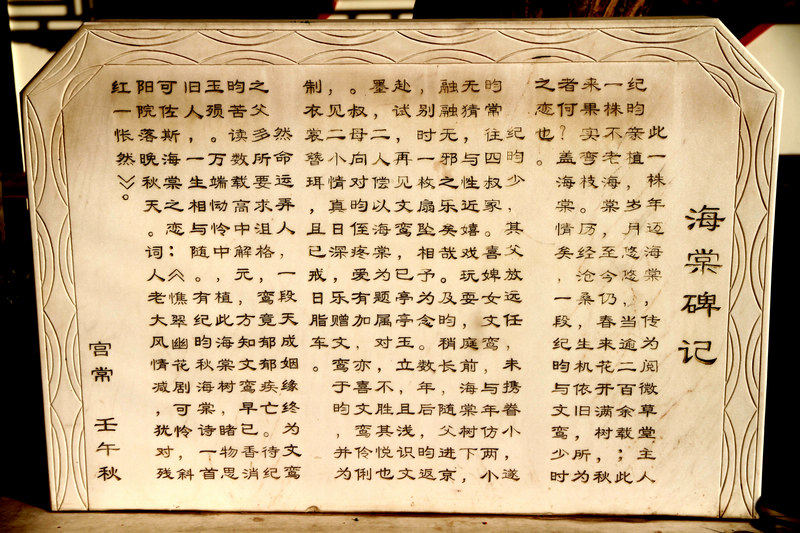 海棠碑记
此一株年迈海棠,传为阅微草堂主人
纪昀亲植,岁月悠悠,当逾二百余载;此
一株不老海棠,至今仍春来花开满树,秋
来果实弯枝。历经沧桑,生机依旧,所为
者何?盖海棠情矣,一段纪昀与文鸾少时
之恋也。
纪昀少,其父放远任,未携眷小,遂
昀常往四叔家。喜婢女文鸾,与年仿,两小
无猜,与性近嬉戏玩耍,庭前海棠树下,
融融无邪之乐矣哉。及昀稍长,随父进京
,别时一枚扇坠相予为念。数年后,昀返
赴试,再见文鸾,已亭亭玉立,且浅识文
墨,二人偿以海棠为题属对,不胜其悦也
。叔母对昀侄疼爱有加,亦喜文鸾伶俐
,见二小情真日深,乐赠文鸾于昀,并为
制衣裳替珥,且已戒日脂车。
然命运弄人,一段天成姻缘终为文鸾
之父多所要求沮格,鸾竟郁郁疾亡。待纪
昀苦读数载高中解元,方知文鸾早已香消
玉殒。万端恸怜中,植此海棠树,睹物思
旧人,一生相与随。有纪昀秋海棠诗一首
可佐斯海棠之恋:《憔翠幽花剧可怜,斜
阳院落晚秋天。词人老大风情减,犹对残
红一怅然》。
宫常 壬午秋